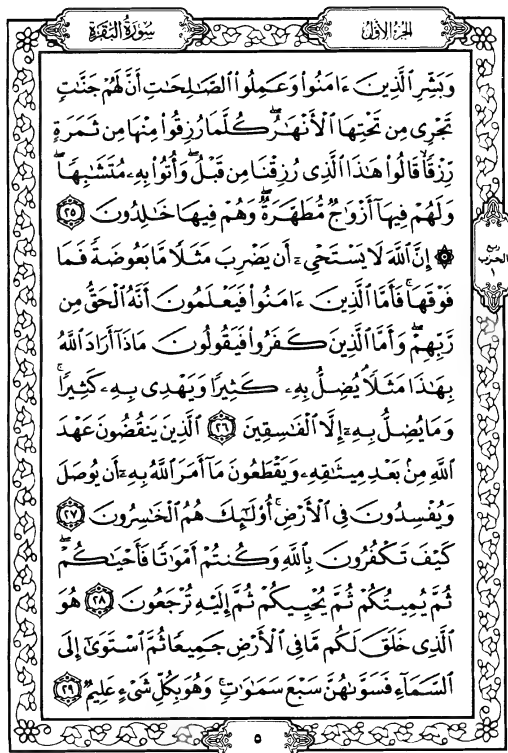 سورة البقرة
الجزء الأول
وَبَشِّرِ الَّذِينَ ءَامَنُوا وَعَمِلُوا الصَّالِحَاتِ أَنَّ لَهُمْ جَنَّاتٍ
تَجْرِي مِن تَحْتِهَا الْأَنْهَارُ ۖ كُلَّمَا رُزِقُوا مِنْهَا مِن ثَمَرَةٍ
رِّزْقًا ۙ قَالُوا هَٰذَا الَّذِي رُزِقْنَا مِن قَبْلُ ۖ وَأُتُوا بِهِ مُتَشَابِهًا ۖ
وَلَهُمْ فِيهَا أَزْوَاجٌ مُّطَهَّرَةٌ ۖ وَهُمْ فِيهَا خَالِدُونَ ٢٥
۞ إِنَّ اللَّهَ لَا يَسْتَحْيِ أَن يَضْرِبَ مَثَلًا مَّا بَعُوضَةً فَمَا
فَوْقَهَا ۚ فَأَمَّا الَّذِينَ ءَامَنُوا فَيَعْلَمُونَ أَنَّهُ الْحَقُّ مِن
رَّبِّهِمْ ۖ وَأَمَّا الَّذِينَ كَفَرُوا فَيَقُولُونَ مَاذَا أَرَادَ اللَّهُ
بِهَٰذَا مَثَلًا ۘ يُضِلُّ بِهِ كَثِيرًا وَيَهْدِي بِهِ كَثِيرًا ۚ
وَمَا يُضِلُّ بِهِ إِلَّا الْفَاسِقِينَ ٢٦ الَّذِينَ يَنقُضُونَ عَهْدَ
اللَّهِ مِن بَعْدِ مِيثَاقِهِ وَيَقْطَعُونَ مَا أَمَرَ اللَّهُ بِهِ أَن يُوصَلَ
وَيُفْسِدُونَ فِي الْأَرْضِ ۚ أُولَٰئِكَ هُمُ الْخَاسِرُونَ ٢٧
كَيْفَ تَكْفُرُونَ بِاللَّهِ وَكُنتُمْ أَمْوَاتًا فَأَحْيَاكُمْ ۖ
ثُمَّ يُمِيتُكُمْ ثُمَّ يُحْيِيكُمْ ثُمَّ إِلَيْهِ تُرْجَعُونَ ٢٨ هُوَ
الَّذِي خَلَقَ لَكُم مَّا فِي الْأَرْضِ جَمِيعًا ثُمَّ اسْتَوَىٰ إِلَى
السَّمَاءِ فَسَوَّاهُنَّ سَبْعَ سَمَاوَاتٍ ۚ وَهُوَ بِكُلِّ شَيْءٍ عَلِيمٌ ٢٩
ربع
الحزب
١
٥